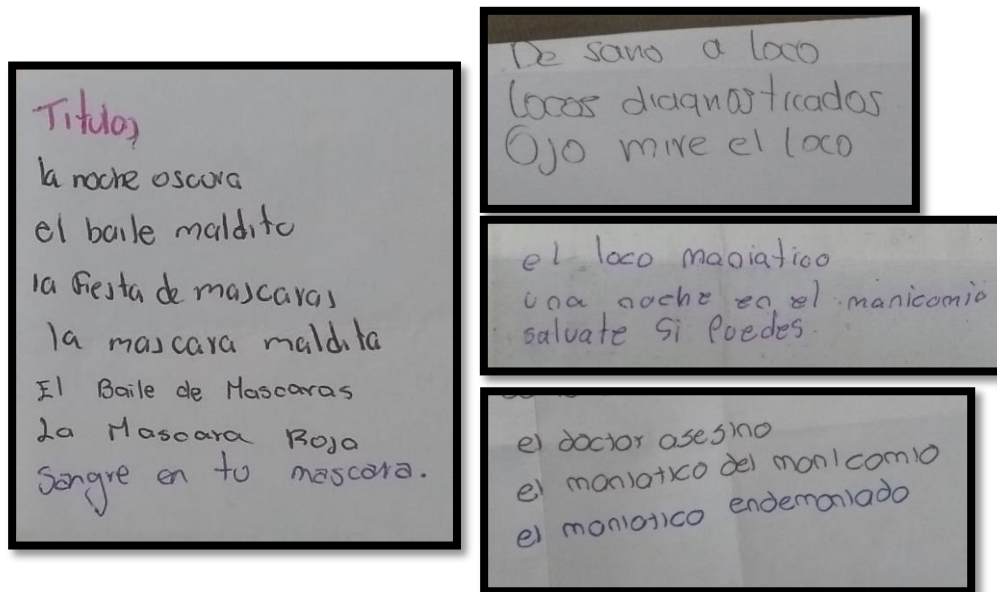 Titulos
la noche oscura
el baile maldito
la fiesta de mascaras
la mascara maldita
El Baile de Mascaras
La Mascara Roja
Sangre en tu mascara.
De sano a loco
locos diagnosticados
Ojo mire el loco
el loco maniatico
una noche en el manicomio
salvate si puedes.
el doctor asesino
el maniatico del manicomio
el maniatico endemoniado